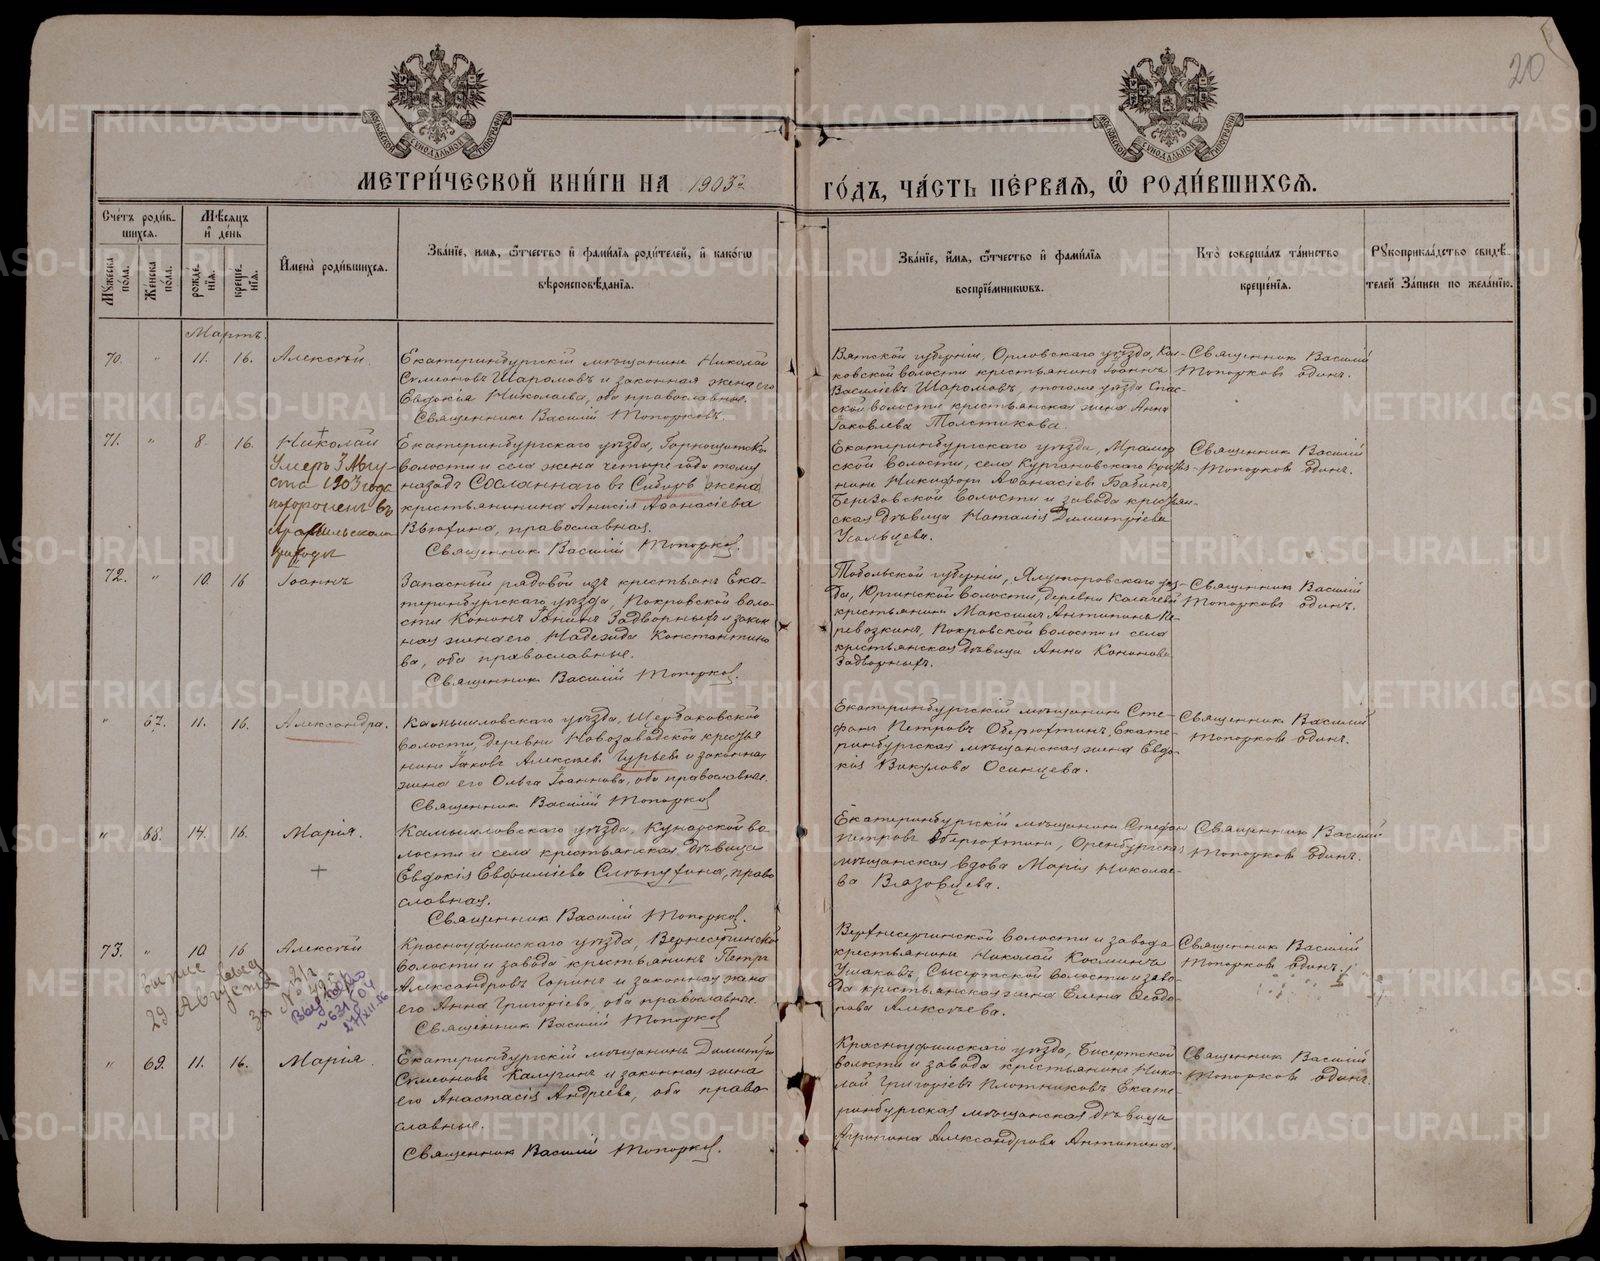 20
МОСКОВСКОЙ СѴНОДАЛЬНОЙ ТИПОГРАФІИ
МОСКОВСКОЙ СѴНОДАЛЬНОЙ ТИПОГРАФІИ
МЕТРИ́ЧЕСКОЙ КНИ́ГИ НА 1903й ГО́ДЪ, ЧА́СТЬ ПЕ́РВАЯ, Ѡ РОДИ́ВШИХСЯ.
Сче́тъ роди́в-
шихся.
Мꙋжеска по́ла.
Же́нска по́ла.
Мѣ́сяцъ
и де́нь
рожде́-
нїя.
креще́-
нїя.
Имена̀ роди́вшихся.
Зва́нїе, имя, ѻ́тчество и фами́лїя роди́телей, и како́гѡ
вѣроисповѣ́данїя.
Зва́нїе, и́мя, ѻ́тчество и фами́лїя
воспрїе́мникѡвъ.
Кто̀ соверша́лъ та́инство
креще́нїя.
Рꙋкоприкла́дство свидѣ́-
телей За́писи по жела́нїю.
Мартъ.
70. " 11. 16. Алексѣй
Екатеринбургскій мѣщанинъ Николай
Симеоновъ Шаромовъ и законная жена его
Евдокія Николаева, оба православные.
Священникъ Василій Топорковъ.
Вятской губерніи, Орловскаго уѣзда, Кол-
ковской волости крестьянинъ Іоаннъ
Василіевъ Шаромовъ, тогоже уѣзда Спас-
ской волости крестьянская жена Анна
Іаковлева Толстикова.
Священникъ Василій
Топорковъ одинъ.
71. " 8. 16. Николай
Умеръ 3 Авгу-
ста 1903 года
похороненъ въ
Арамильскомъ
приходѣ
Екатеринбургскаго уѣзда, Горнощитской
волости и села жена четыре года тому
назадъ Сосланнаго въ Сибирь жена
крестьянинина Анисія Аѳанасіева
Вьюхина, православная.
Священникъ Василій Топорковъ.
Екатеринбургскаго уѣзда, Мрамор
ской волости, села Кургановскаго крестья-
нинъ Никифоръ Аѳанасіевъ Бабинъ,
Березовской волости и завода крестьян-
ская дѣвица Наталія Димитріева
Усольцева.
Священникъ Василій
Топорковъ одинъ.
72. " 10. 16 Іоаннъ
Запасный рядовой изъ крестьянъ Ека-
теринбургскаго уѣзда, Покровской воло-
сти Кононъ Іонинъ Задворныхъ и закон
ная жена его Надежда Константино
ва, оба православные.
Священникъ Василій Топорковъ.
Тобольской губерніи, Ялуторовскаго уѣз-
да, Юргинской волости, деревни Калачевой
крестьянинъ Максимъ Антипинъ Пе-
ревозкинъ, Покровской волости и села
крестьянская дѣвица Анна Кононова
Задворныхъ.
Священникъ Василій
Топорковъ одинъ.
" 67. 11. 16. Александра.
Камышловскаго уѣзда, Щербаковской
волости, деревни Новозаводской крестья
нинъ Іаковъ Алексѣевъ Гурьевъ и законная
жена его Ольга Іоаннова, оба православные.
Священникъ Василій Топорковъ
Екатеринбургскій мѣщанинъ Сте-
фанъ Петровъ Оберюхтинъ, Екате-
ринбургская мѣщанская жена Евдо-
кія Викулова Осинцева.
Священникъ Василій
Топорковъ одинъ.
" 68. 14. 16. Марія.
Камышловскаго уѣзда, Кунарской во-
лости и села крестьянская дѣвица
Евдокія Евфиміева Слѣпухина, право
славная.
Священникъ Василій Топорковъ.
Екатеринбургскій мѣщанинъ Стефанъ
Петровъ Оберюхтинъ, Оренбургская
мѣщанская вдова Марія Николае-
ва Вязовцева.
Священникъ Василій
Топорковъ одинъ.
73. " 10 16 Алексѣй
29 Августа
27/XII.16
Красноуфимскаго уѣзда, Верхнесергинской
волости и завода крестьянинъ Петръ
Александровъ Горинъ и законная жена
его Анна Григоріева, оба православные.
Священникъ Василій Топорковъ
Верхнесергинской волости и завода
крестьянинъ Николай Косминъ
Ушаковъ, Сысертской волости и заво-
да крестьянская жена Елена Ѳеодо-
рова Алексѣева.
Священникъ Василій
Топорковъ одинъ.
" 69. 11. 16. Марія.
Екатеринбургскій мѣщанинъ Димитрій
Симеоновъ Калугинъ и законная жена
его Анастасія Андреева, оба право-
славные.
Священникъ Василій Топорковъ.
Красноуфимскаго уѣзда, Бисертской
волости и завода крестьянинъ Нико-
лай Григоріевъ Плотниковъ Екате-
ринбургская мѣщанская дѣвица
Агрипина Александрова Антипина.
Священникъ Василій
Топорковъ одинъ.
METRIKI.GASO-URAL.RU